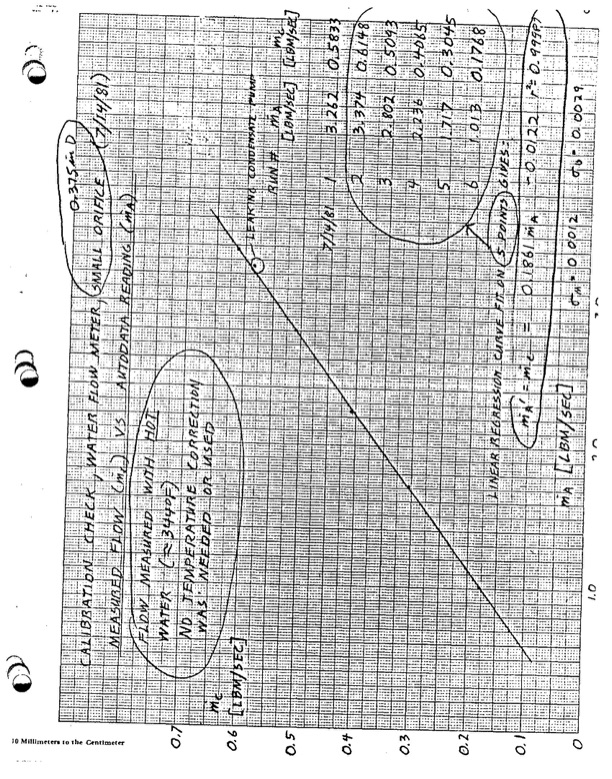 0.375 in D
CALIBRATION CHECK, WATER FLOW METER, SMALL ORIFICE (7/14/81)
MEASURED FLOW (ṁc) VS AUTODATA READING (ṁA)
FLOW MEASURED WITH HOT
WATER (≈344°F)
NO TEMPERATURE CORRECTION
WAS NEEDED OR USED
ṁc
[LBM/SEC]
LEAKING CONDENSATE PUMP
RUN # ṁA ṁc
[LBM/SEC] [LBM/SEC]
7/14/81 1 3.262 0.5833
2 3.374 0.6148
3 2.802 0.5093
4 2.236 0.4065
5 1.717 0.3045
6 1.013 0.1768
LINEAR REGRESSION CURVE FIT ON 5 POINTS GIVES:
ṁA' = ṁc = 0.1861 ṁA - 0.0122 r² = 0.99987
σM = 0.0012 σb = 0.0029
ṁA [LBM/SEC]
0.7
0.6
0.5
0.4
0.3
0.2
0.1
0
1.0
10 Millimeters to the Centimeter